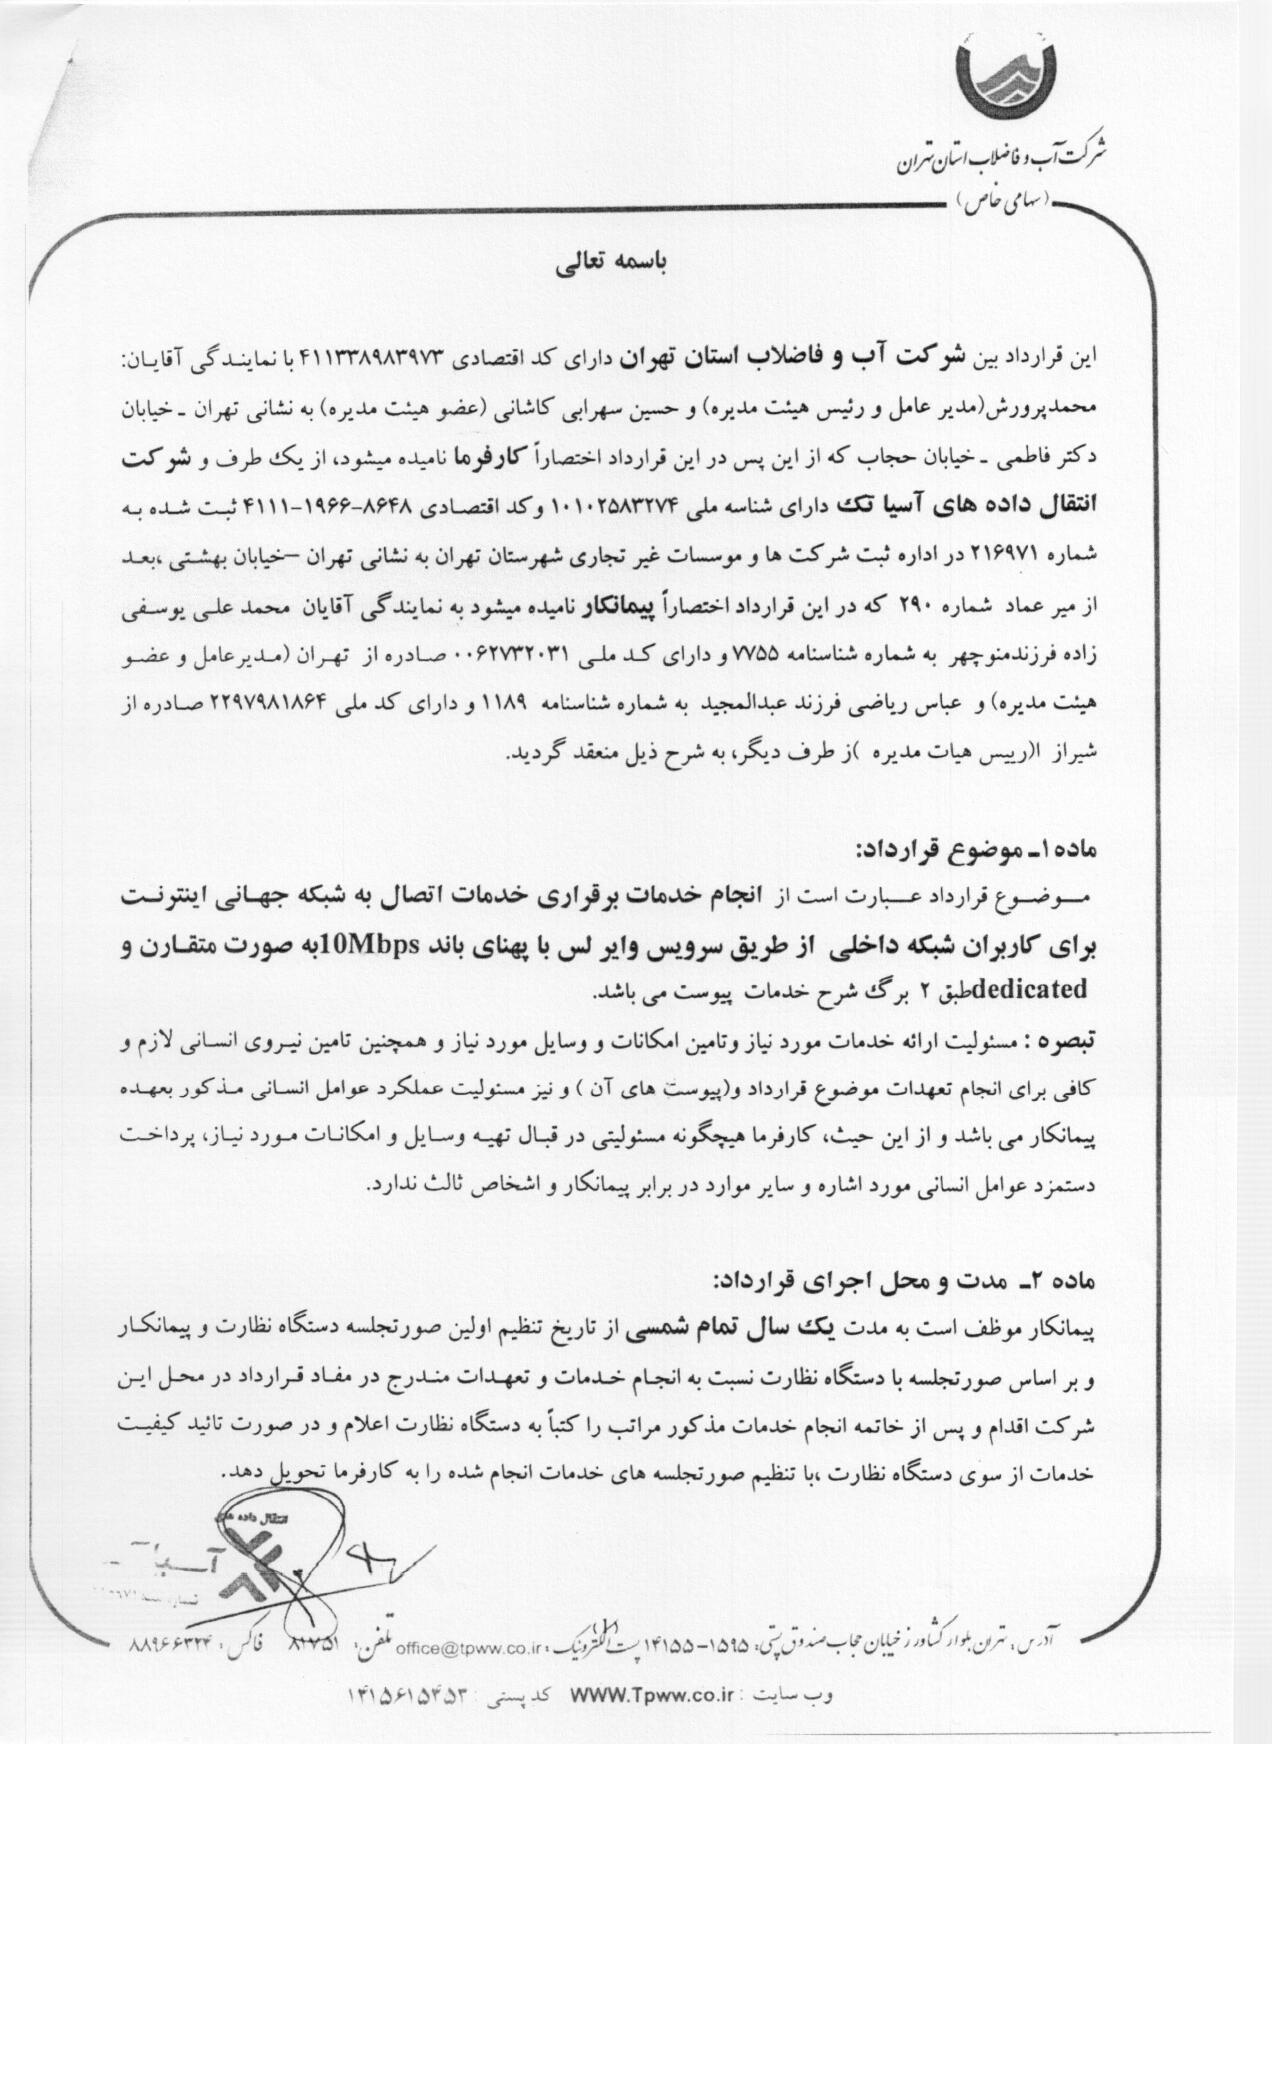 شرکت آب و فاضلاب استان تهران
(سهامی خاص)
باسمه تعالی
این قرارداد بین شرکت آب و فاضلاب استان تهران دارای کد اقتصادی ۴۱۱۳۳۸۹۸۳۹۷۳ با نمایندگی آقایان:
محمدپرورش(مدیر عامل و رئیس هیئت مدیره) و حسین سهرابی کاشانی (عضو هیئت مدیره) به نشانی تهران ـ خیابان
دکتر فاطمی ـ خیابان حجاب که از این پس در این قرارداد اختصاراً کارفرما نامیده میشود، از یک طرف و شرکت
انتقال داده های آسیا تک دارای شناسه ملی ۱۰۱۰۲۵۸۳۲۷۴ وکد اقتصادی ۸۶۴۸-۱۹۶۶-۴۱۱۱ ثبت شده به
شماره ۲۱۶۹۷۱ در اداره ثبت شرکت ها و موسسات غیر تجاری شهرستان تهران به نشانی تهران –خیابان بهشتی ،بعد
از میر عماد شماره ۲۹۰ که در این قرارداد اختصاراً پیمانکار نامیده میشود به نمایندگی آقایان محمد علی یوسفی
زاده فرزندمنوچهر به شماره شناسنامه ۷۷۵۵ و دارای کد ملی ۰۰۶۲۷۳۲۰۳۱ صادره از تهران (مدیرعامل و عضو
هیئت مدیره) و عباس ریاضی فرزند عبدالمجید به شماره شناسنامه ۱۱۸۹ و دارای کد ملی ۲۲۹۷۹۸۱۸۶۴ صادره از
شیراز ا(رییس هیات مدیره )ز طرف دیگر، به شرح ذیل منعقد گردید.
ماده ۱ـ موضوع قرارداد:
موضوع قرارداد عبارت است از انجام خدمات برقراری خدمات اتصال به شبکه جهانی اینترنت
برای کاربران شبکه داخلی از طریق سرویس وایر لس با پهنای باند 10Mbpsبه صورت متقارن و
dedicatedطبق ۲ برگ شرح خدمات پیوست می باشد.
تبصره : مسئولیت ارائه خدمات مورد نیاز وتامین امکانات و وسایل مورد نیاز و همچنین تامین نیروی انسانی لازم و
کافی برای انجام تعهدات موضوع قرارداد و(پیوست های آن ) و نیز مسئولیت عملکرد عوامل انسانی مذکور بعهده
پیمانکار می باشد و از این حیث، کارفرما هیچگونه مسئولیتی در قبال تهیه وسایل و امکانات مورد نیاز، پرداخت
دستمزد عوامل انسانی مورد اشاره و سایر موارد در برابر پیمانکار و اشخاص ثالث ندارد.
ماده ۲ـ مدت و محل اجرای قرارداد:
پیمانکار موظف است به مدت یک سال تمام شمسی از تاریخ تنظیم اولین صورتجلسه دستگاه نظارت و پیمانکار
و بر اساس صورتجلسه با دستگاه نظارت نسبت به انجام خدمات و تعهدات مندرج در مفاد قرارداد در محل این
شرکت اقدام و پس از خاتمه انجام خدمات مذکور مراتب را کتباً به دستگاه نظارت اعلام و در صورت تائید کیفیت
خدمات از سوی دستگاه نظارت ،با تنظیم صورتجلسه های خدمات انجام شده را به کارفرما تحویل دهد.
انتقال داده های
آسیا
آدرس: تهران بلوار کشاورز خیابان حجاب صندوق پستی: ۱۵۹۵-۱۴۱۵۵ پست الکترونیک: office@tpww.co.ir تلفن: ۸۱۷۵۱ فاکس: ۸۸۹۶۶۳۲۴
وب سایت : WWW.Tpww.co.ir کد پستی : ۱۴۱۵۶۱۵۴۵۳